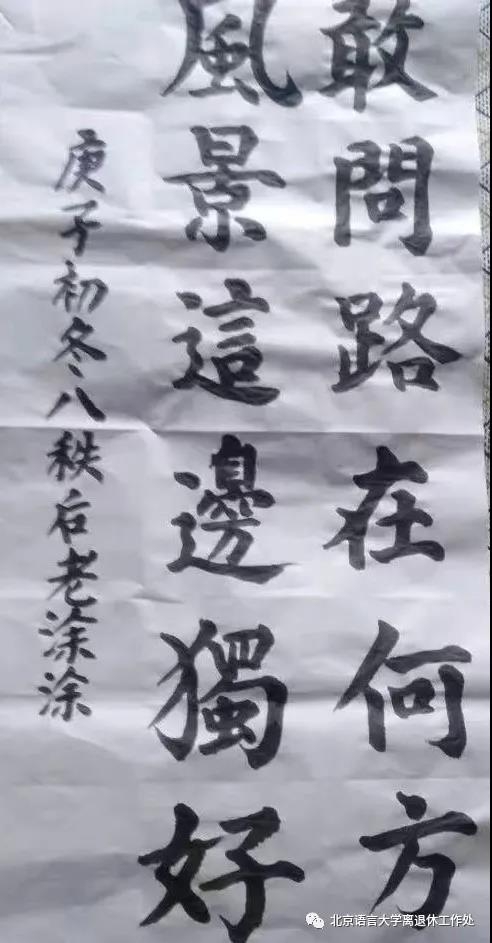 敢問路在何方
風景這邊獨好
庚子初冬八秩后老涂涂
北京语言大学离退休工作处